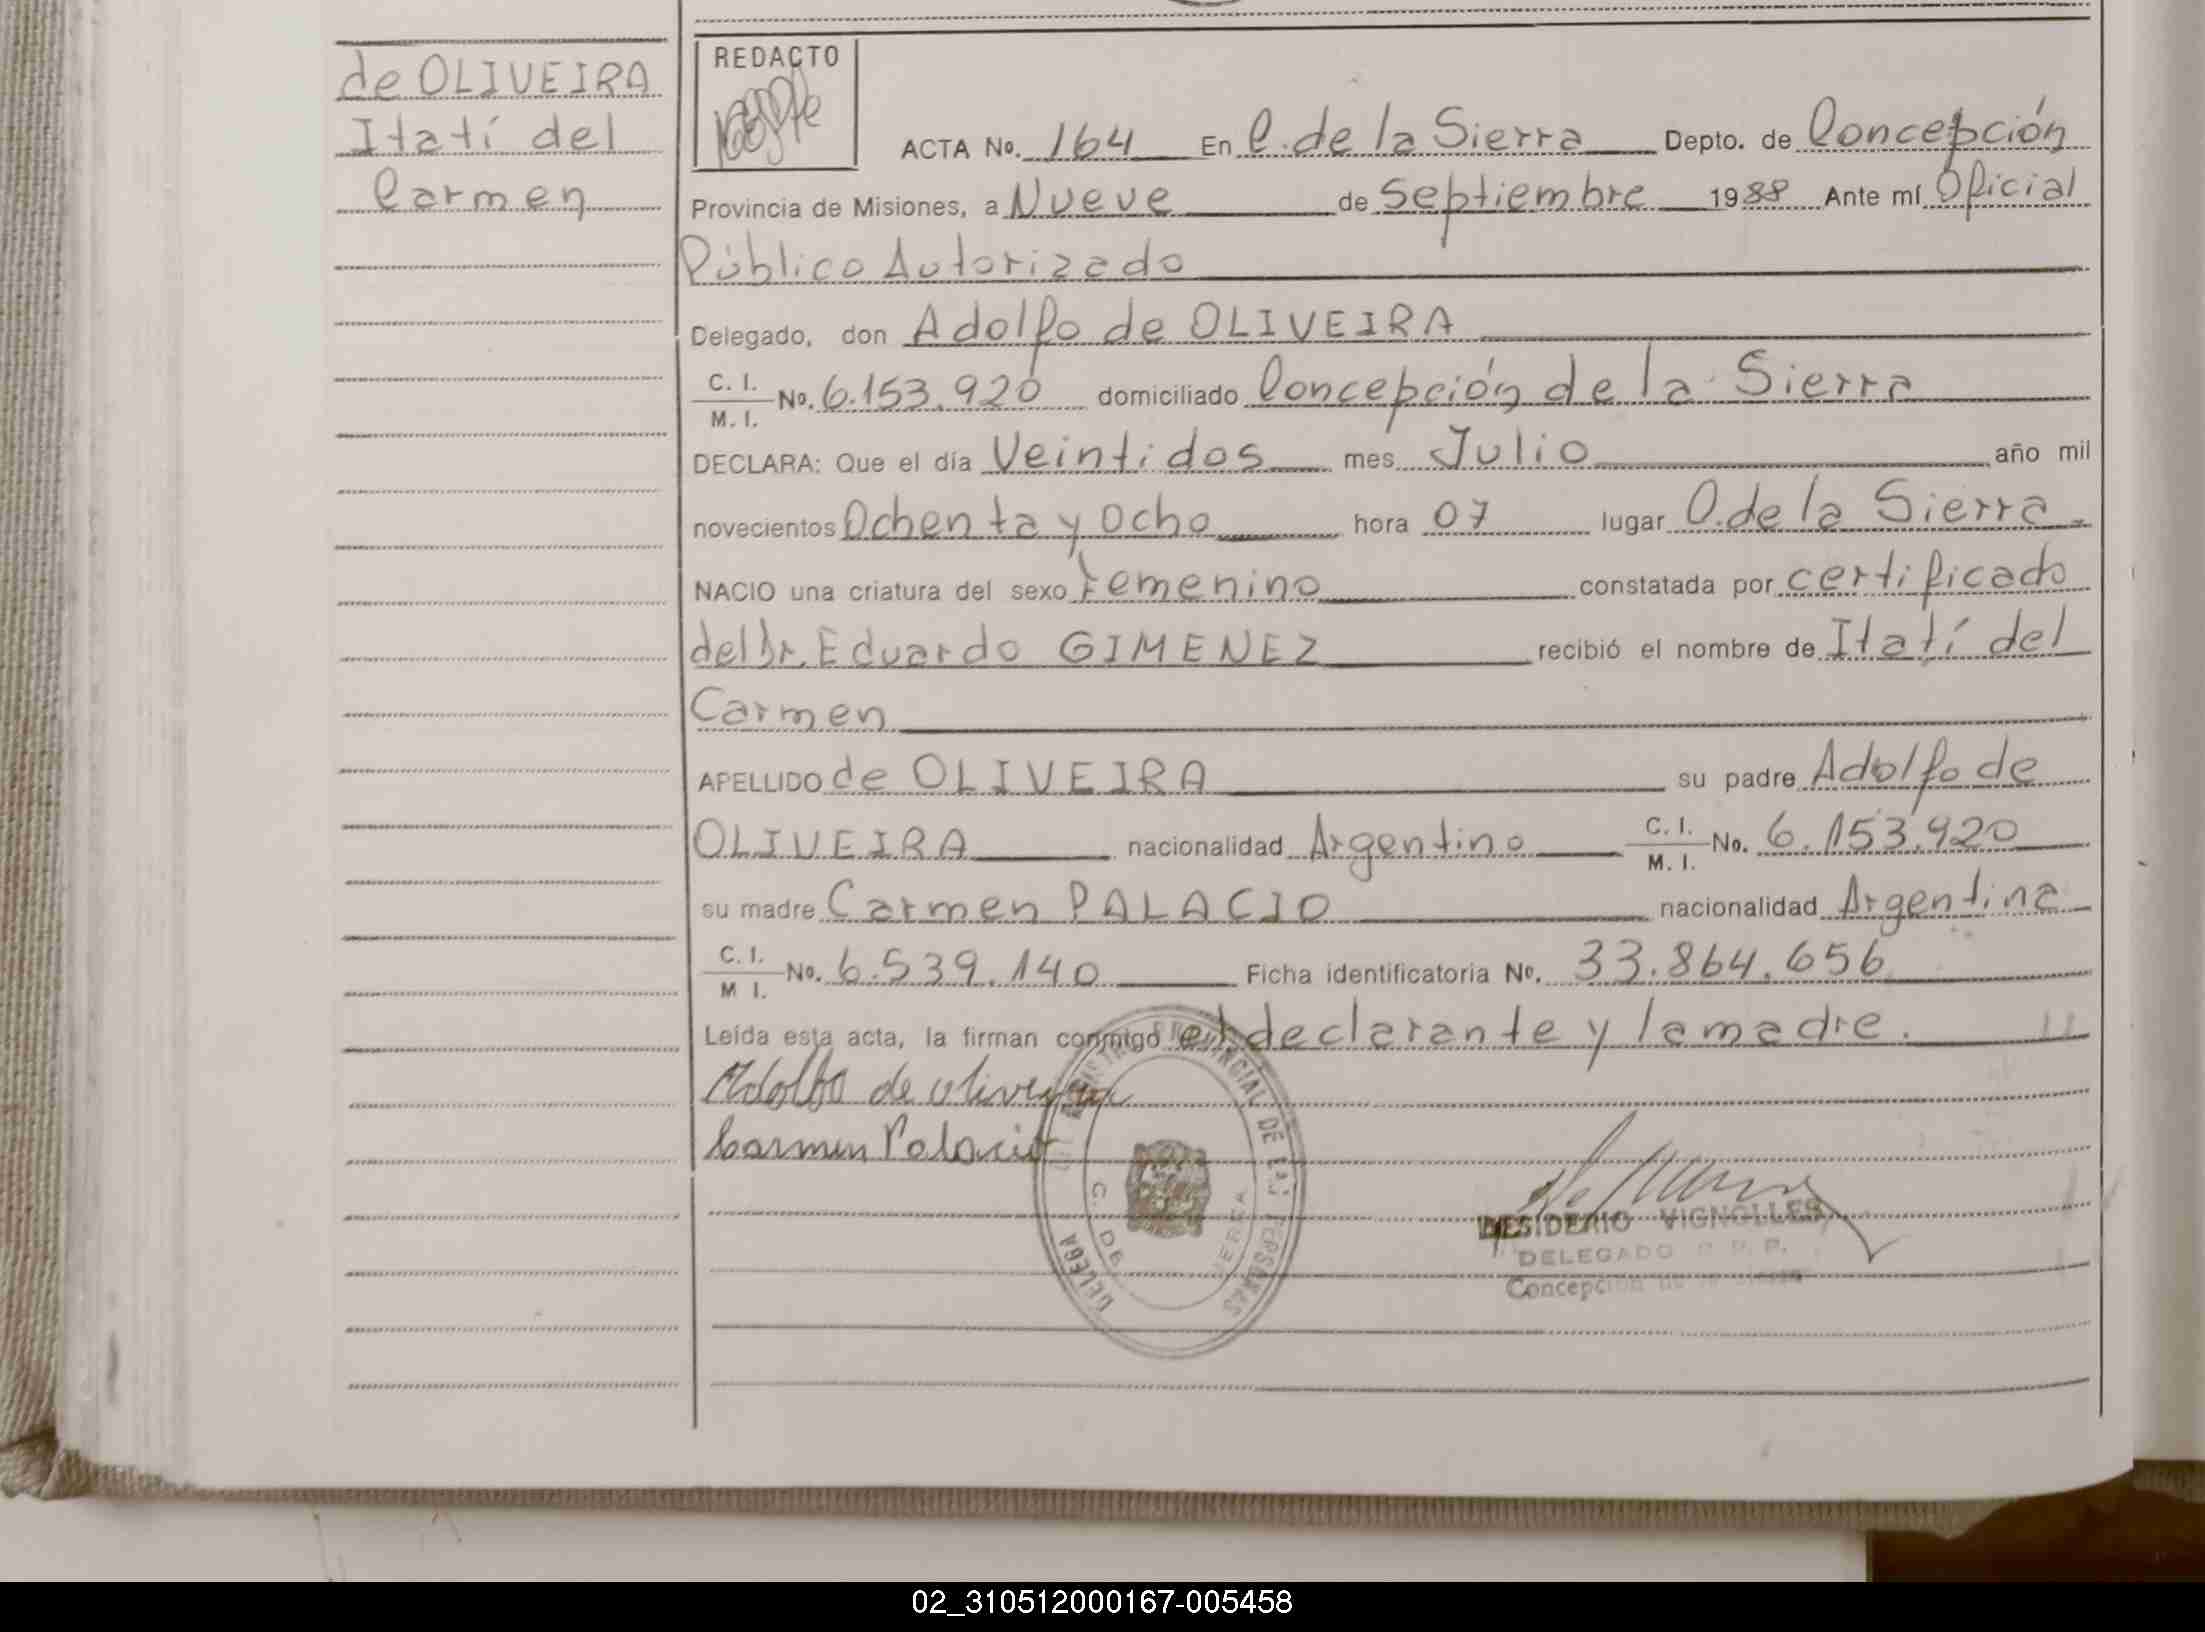 de OLIVEIRA
Itatí del
Carmen
REDACTO
ACTA No. 164 En C. de la Sierra Depto. de Concepción
Provincia de Misiones, a Nueve de Septiembre 1988 Ante mí Oficial
Público Autorizado
Delegado, don Adolfo de OLIVEIRA
C. I.
M. I. No. 6.153.920 domiciliado Concepción de la Sierra
DECLARA: Que el día Veintidos mes Julio año mil
novecientos Ochenta y Ocho hora 07 lugar C. de la Sierra
NACIO una criatura del sexo Femenino constatada por certificado
del Dr. Eduardo GIMENEZ recibió el nombre de Itatí del
Carmen
APELLIDO de OLIVEIRA su padre Adolfo de
OLIVEIRA nacionalidad Argentino C. I. M. I. No. 6.153.920
su madre Carmen PALACIO nacionalidad Argentina
C. I.
M I. No. 6.539.140 Ficha identificatoria No. 33.864.656
Leída esta acta, la firman conmigo el declarante y la madre.
Adolfo de Oliveira
Carmen Palacio
DELEGA
C. DE
IERRA
PROVINCIAL DE LAS PERSONAS
DESIDERIO VIGNOLLES
DELEGADO R. P. P.
Concepción de la Sierra
02_310512000167-005458